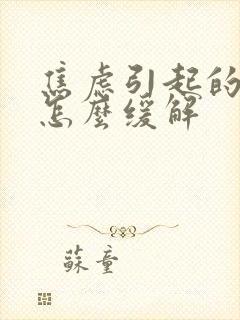 焦虑引起的
怎麼缓解
蘇童